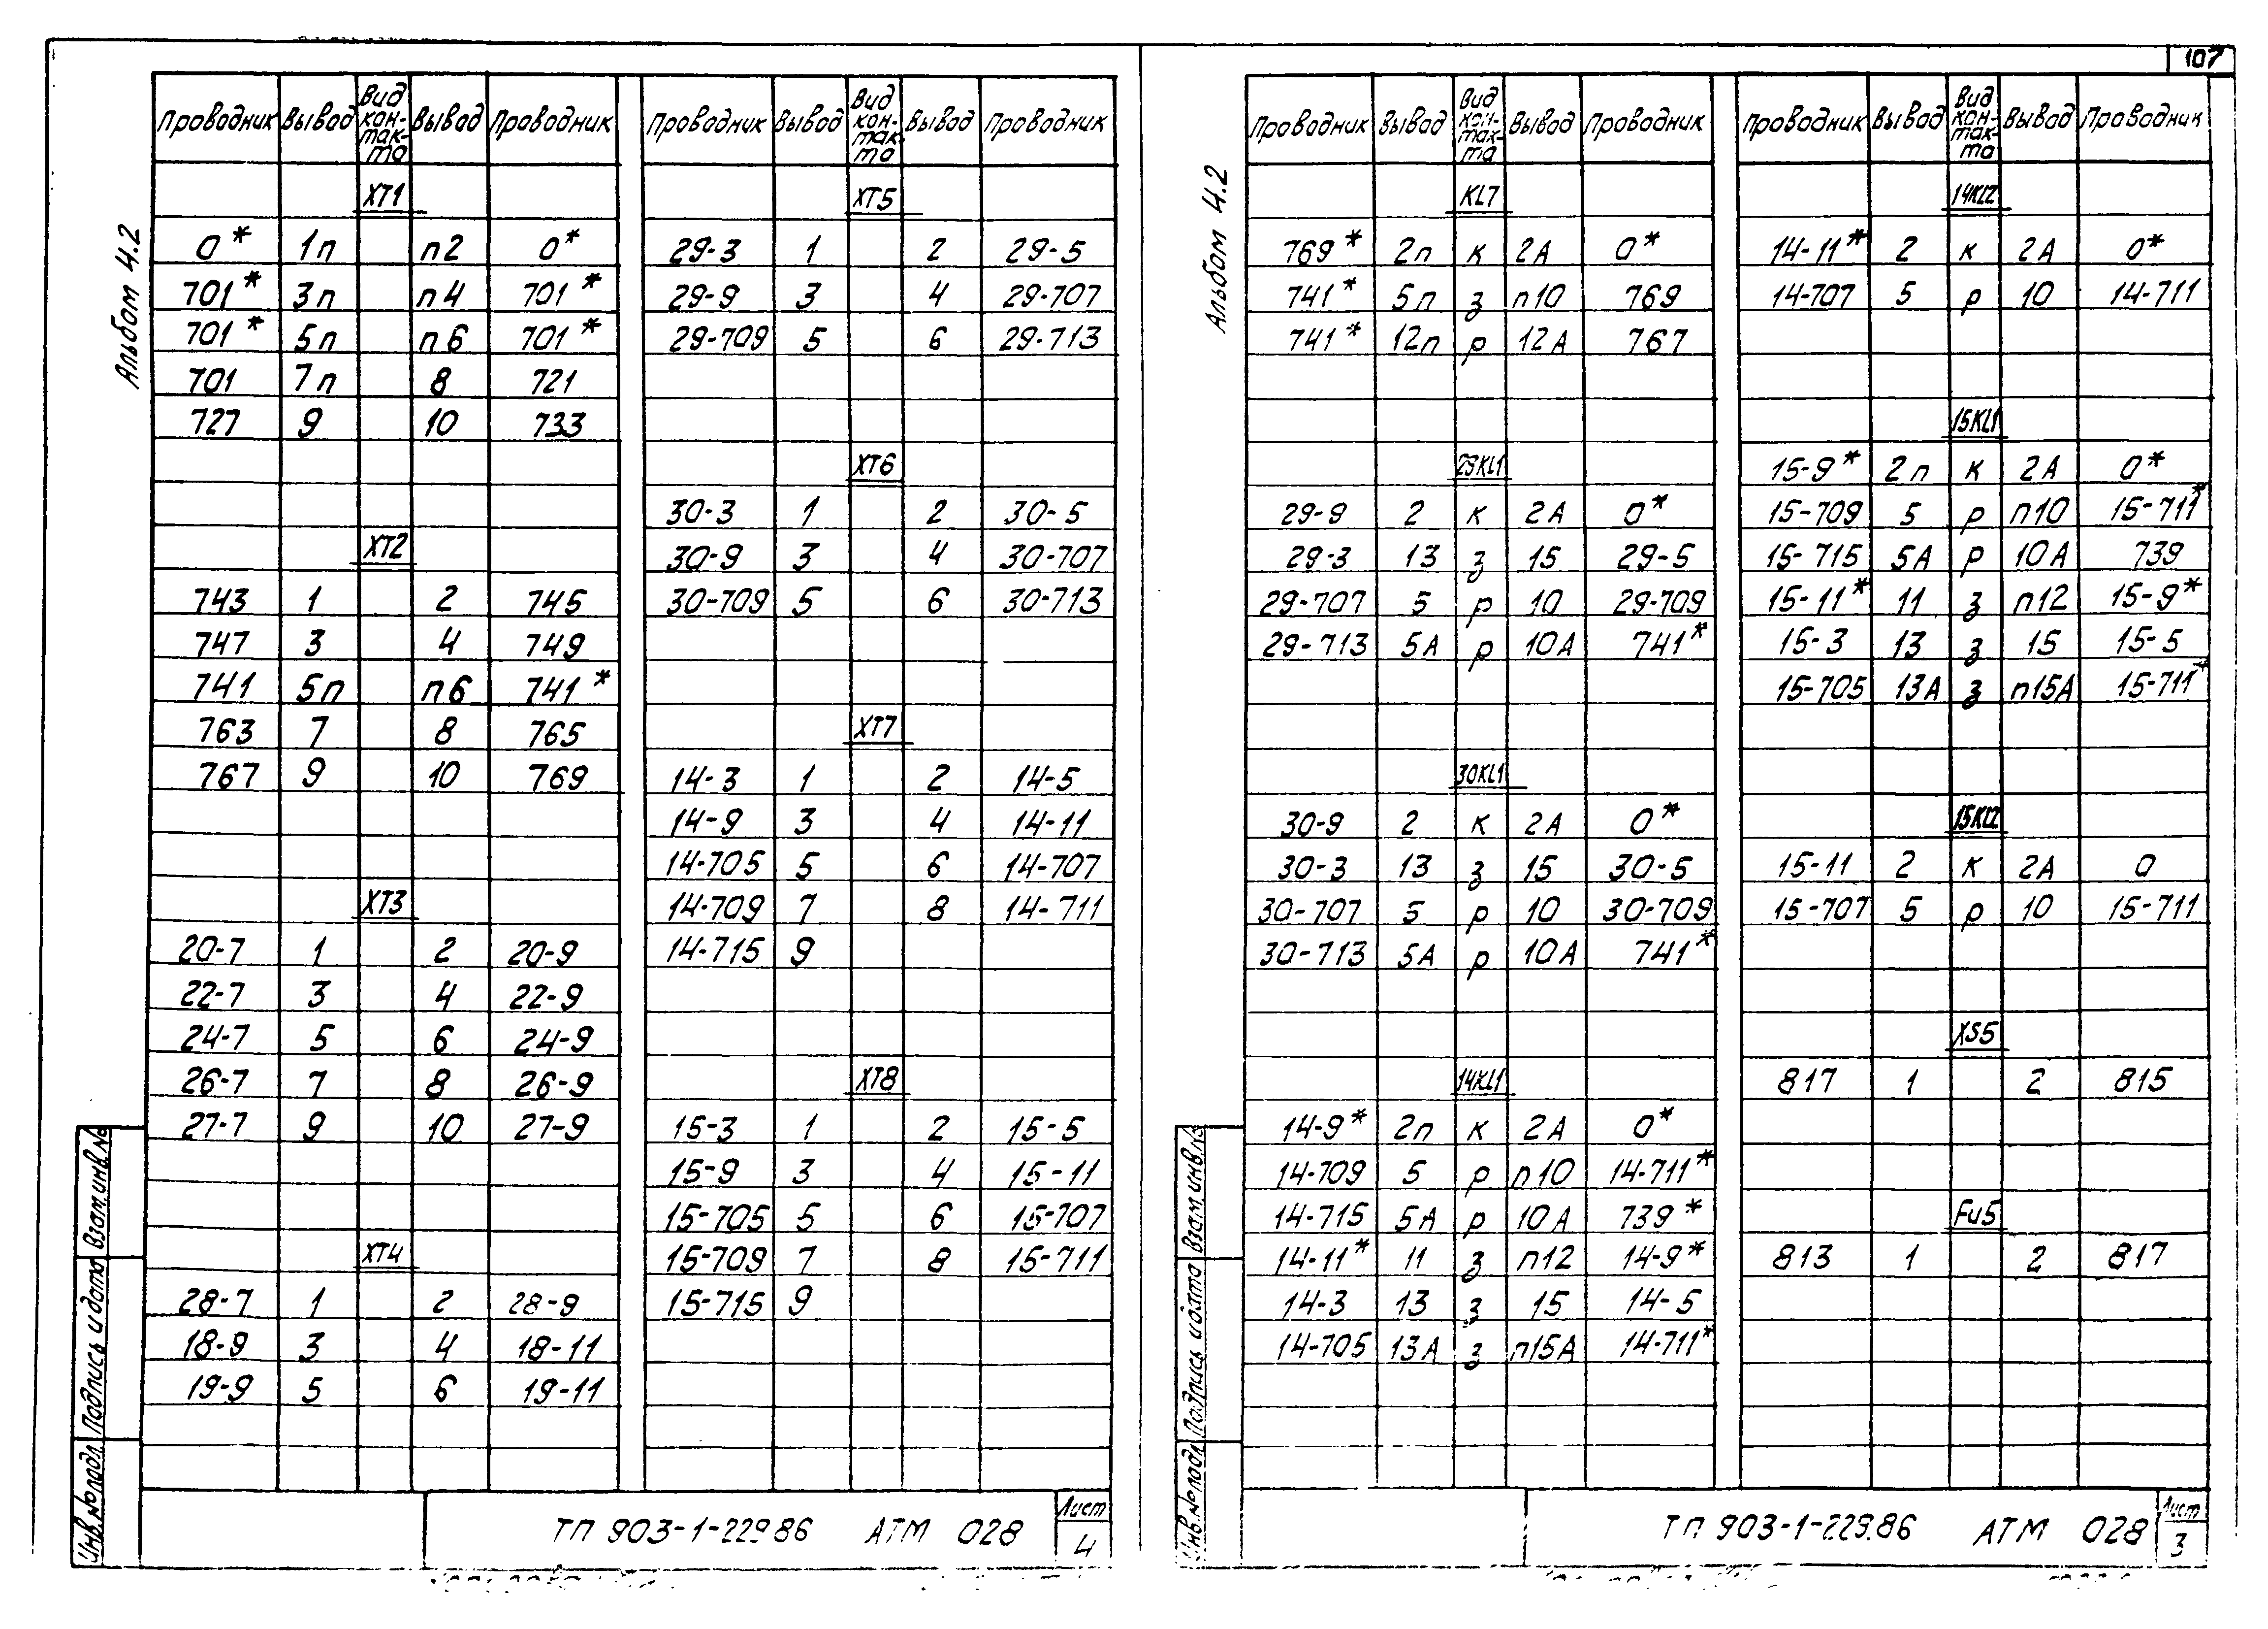 107
Альбом 4.2
Проводник Вывод Вид кон-так-та Вывод Проводник
XT1
0* 1п п2 0*
701* 3п п4 701*
701* 5п п6 701*
701 7п 8 721
727 9 10 733
XT2
743 1 2 745
747 3 4 749
741 5п п6 741*
763 7 8 765
767 9 10 769
XT3
20-7 1 2 20-9
22-7 3 4 22-9
24-7 5 6 24-9
26-7 7 8 26-9
27-7 9 10 27-9
XT4
28-7 1 2 28-9
18-9 3 4 18-11
19-9 5 6 19-11
Проводник Вывод Вид кон-так-та Вывод Проводник
XT5
29-3 1 2 29-5
29-9 3 4 29-707
29-709 5 6 29-713
XT6
30-3 1 2 30-5
30-9 3 4 30-707
30-709 5 6 30-713
XT7
14-3 1 2 14-5
14-9 3 4 14-11
14-705 5 6 14-707
14-709 7 8 14-711
14-715 9
XT8
15-3 1 2 15-5
15-9 3 4 15-11
15-705 5 6 15-707
15-709 7 8 15-711
15-715 9
Инв.№подл. Подпись и дата Взам.инв.№
ТП 903-1-229.86 АТМ 028
Лист
4
Альбом 4.2
Проводник Вывод Вид кон-так-та Вывод Проводник
KL7
769* 2п к 2А 0*
741* 5п з п10 769
741* 12п р 12А 767
29KL1
29-9 2 к 2А 0*
29-3 13 з 15 29-5
29-707 5 р 10 29-709
29-713 5А р 10А 741*
30KL1
30-9 2 к 2А 0*
30-3 13 з 15 30-5
30-707 5 р 10 30-709
30-713 5А р 10А 741*
14KL1
14-9* 2п к 2А 0*
14-709 5 р п10 14-711*
14-715 5А р 10А 739*
14-11* 11 з п12 14-9*
14-3 13 з 15 14-5
14-705 13А з п15А 14-711*
Проводник Вывод Вид кон-так-та Вывод Проводник
14KL2
14-11* 2 к 2А 0*
14-707 5 р 10 14-711
15KL1
15-9* 2п к 2А 0*
15-709 5 р п10 15-711*
15-715 5А р 10А 739
15-11* 11 з п12 15-9*
15-3 13 з 15 15-5
15-705 13А з п15А 15-711*
15KL2
15-11 2 к 2А 0
15-707 5 р 10 15-711
XS5
817 1 2 815
Fu5
813 1 2 817
Инв.№подл. Подпись и дата Взам.инв.№
ТП 903-1-229.86 АТМ 028
Лист
3